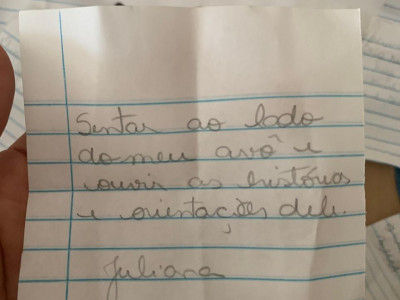 Sentar ao lado
do meu avô e
ouvir as histórias
e orientações dele.
Juliana